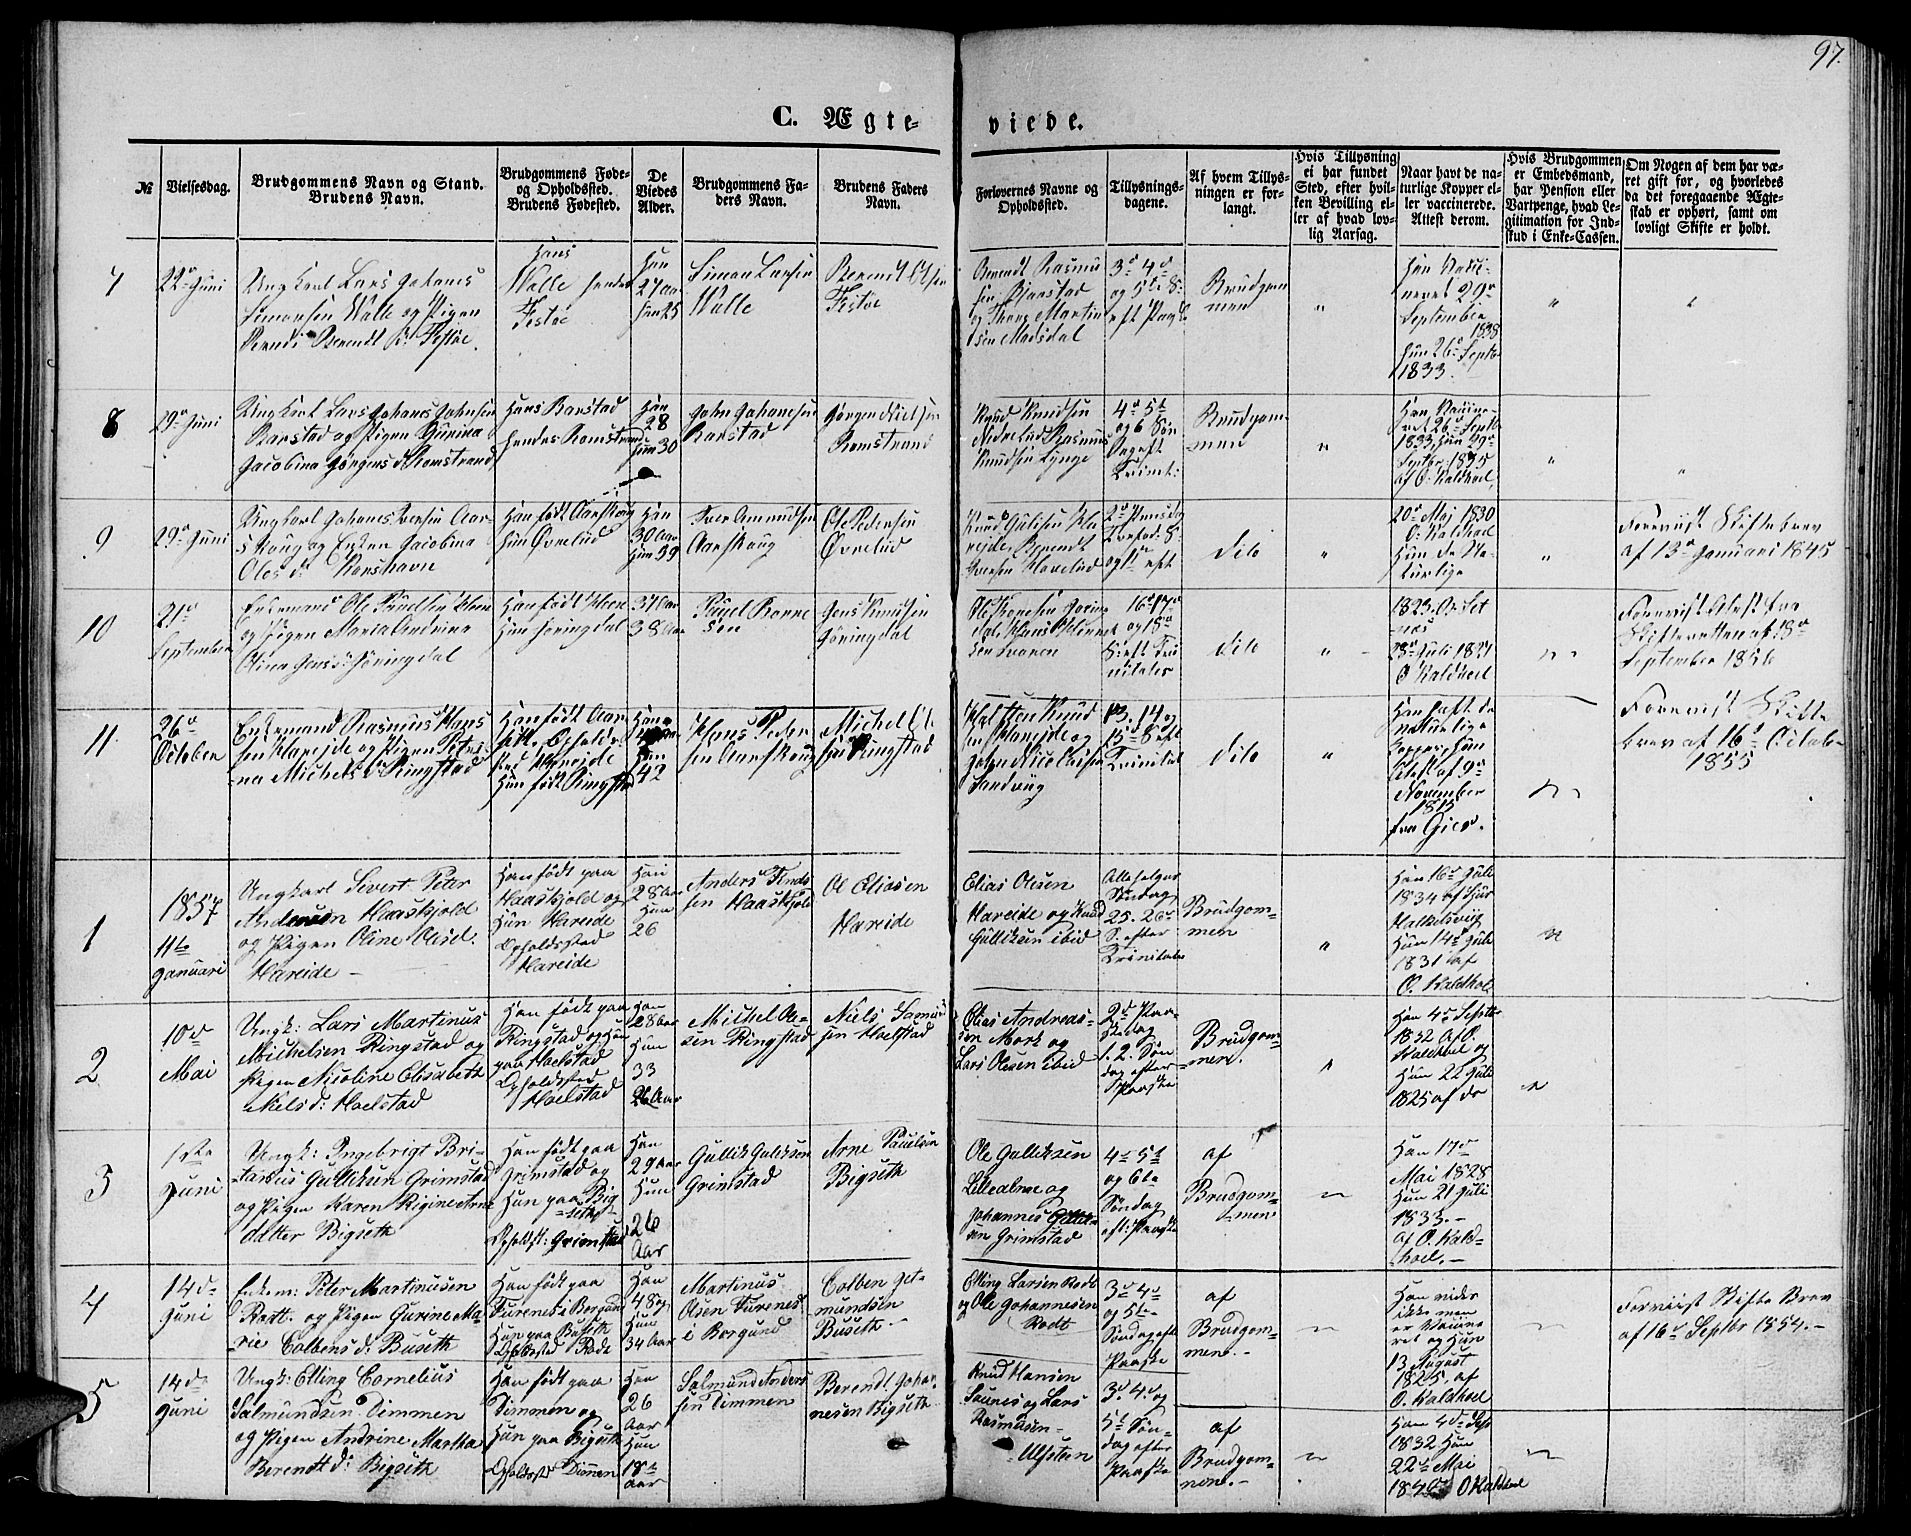 97.
C. Ægte-
viede.
№
Vielsesdag.
Brudgommens Navn og Stand.
Brudens Navn.
Brudgommens Føde-
og Opholdssted.
Brudens Fødested.
De
Viedes
Alder.
Brudgommens Fa-
ders Navn.
Brudens Faders
Navn.
Forlovernes Navne og
Opholdssted.
Tillysnings-
dagene.
Af hvem Tillys-
ningen er for-
langt.
Hvis Tillysning
ei har fundet
Sted, efter hvil-
ken Bevilling el-
ler af hvad lov-
lig Aarsag.
Naar havt de na-
turlige Kopper el-
ler vaccinerede.
Attest derom.
Hvis Brudgommen
er Embedsmand,
har Pension eller
Vartpenge, hvad Le-
gitimation for Ind-
skud i Enke-Cassen.
Om Nogen af dem har væ-
ret gift før, og hvorledes
da det foregaaende Ægte-
skab er ophørt, samt om
lovligt Skifte er holdt.
7
22de Juni
Ungkarl Lars Johanes
Simonsen Walle og Pigen
Berendt
Festøe.
Hans
Walle hendes
Festøe
Han
27 Aar
Hun 25
Simon Larsen
Walle
Berendt Olsen
Festøe
Berendt Rasmu
sen Bjørstad
og Martin
sen Maasdal
3de 4de
og 5te S.
eft Paaske
Brudgom
men
"
Han Vacci-
neret 29de
September
1838
Hun 26de Septb
1833.
"
"
8
29de Juni
Ungkarl Lars Johans Johnsen
Rarstad og Pigen Gurina
Jacobina Jørgens d. Romstrand
Hans Rarstad
hendes Romstrand
Han
28
Hun 30
John Johansen
Rarstad
Jørgen Nielsen
Romstrand
Knud Knudsen
Rasmus
Knudsen Lynge
4de 5te
og 6 Søn
Dag eft
Trinit:
Brudgom-
men
"
Han Vaccine-
ret 26de Septb
1833, Hun 29de
Septbr. 1835
af O: Kaldhoel,
"
"
9
29de Juni
Ungkarl Johanes Iversen Aar-
skoug og Enken Jacobina
Oles d: Ranshavn
Han født Aarskoug
Hun Øvrelid
Han
30 Aar
Hun 39
Iver Amundsen
Aarskoug
Ole Pedersen
Øvrelid
Knud Gulliksen Ha
reide Berendt
Iversen Havelid
2de Paaskdg
S:
og 1te eft
dito
"
20de Maj 1830
O: Kaldhoel
Hun de Na-
turlige
"
Foreviist Skiftebrev
af 13de Januari 1845
10
21de
September
Enkemand Ole
og Pigen Maria Andrina
Olina Jens d. Jøringdal
Han født
Hun Jøringdal
37 Aar
38 Aar
sen
Jens Knudsen
Jøringdal
Ole Jøring
dal Hans
sen
16de 17de
og 18de
S: eft Tri
nitatis
dito
"
1823.
28de Juli 1827
O Kaldhoel
" "
Foreviist Attest fra
Skifteretten af 18de
September 1856
11.
26de
October
Enkemand Rasmus Hans
sen Hareide og Pigen Petri
na Michels d: Ringstad
Han født Aar-
Opholds-
sted Hareide
Hun født Ringstad
Han
Hun
42
Hans Peder
sen Aarskoug
Michel Ole
sen Ringstad
Halsten Knud
sen Hareide og
John Nicolaisen
Sandvig
13. 14 og
15de S eft
Trinitat
dito
"
Han havt de
naturlige
Kopper, Hun
Attest af 9de
November
1815
fra Gie
" "
Foreviist Skifte
brev af 16de Octob-
1855
1
1857
11te
Januari
Ungkarl Sivert Peter
Andersen Haaskjold
og Pigen Oline Olisd.
Hareide –
Han født paa
Haaskjold og
Hun Hareide
Opholdssted
Hareide
Han
28 Aar
Hun
26
Anders Knud
sen Haaskjold
Ole Eliasen
Hareide
Elias Olesen
Hareide og Knud
Gulliksen ibid
Allehelgns
Søndag
25. 26de
S. efter
Trinitatis
Brudgom-
men
"
Han 16de Juli
1834 af
Halkelsviig
Hun 14de Juli
1831 af
O. Kaldhol
"
2
10de
Mai
Ungk: Lars Martinus
Michelsen Ringstad og
Pigen Nicoline Elisabeth
Niels d: Hoelstad
Han født paa
Ringstad og Hun
paa Hoelstad
Opholdssted
Hoelstad
Han
28 Aar
Hun
33
26 Aar
Michel Ole-
sen Ringstad
Niels Samund
sen Hoelstad
Elias Andreas-
sen Mork og
Lars Olesen ibid
2de Paa-
skedag
1. 2. Søn
dag efter
Paaske
Brudgom-
men.
"
Han 4de Septb
1832 af O.
Kaldhoel og
Hun 22 Juli
1825 af do
"
3
1ste
Juni
Ungk: Ingebrigt Bri-
tanus Gulliksen Grimstad
og Pigen Karen Rigine Arne
datter Bigseth
Han født paa
Grimstad og
Hun paa Big
=seth
Opholdst: Grimstad
Han
29 Aar
Hun
26
Aar
Gullik Guliksen
Grimstad
Arne Paulsen
Bigseth
Ole Gulliksen
Lilledalene og
Johannes Gullik-
sen Grimstad
4de 5te
og 6te
Søndag
eft: Paaske
af
Brudgom-
=mene
"
Han 17de
Mai 1828
Hun 21 Juli
1833. –
af O. Kald=
hoel. –
4
14de
Juni
Enkem: Peter Martinusen
Rodt. og Pigen Gurine Ma-
rie Colbens d: Buseth
Han født paa
Furenes i Borgund
Hun paa Buseth
Opholdssted Rodt
Han
48 og
Hun
34 Aar
Martinus
Olsen Furenes
i Borgund
Colben Get-
mundsen
Buseth. –
Elling Larsen Rodt
og Ole Johannesen
Rodt
3de 4de
og 5te
Søndag eft
Paaske
af
Brudgom-
mene. –
"
Han vider
ikke men
er Vaccine
ret og Hun
13 August
1825. af
O. Kaldhoel
"
Foreviist Skifte Brev
af 16de Septbr 1854. –
5
14de
Juni
Ungk: Elling Cornelius
Salmundsen Dimmen
og Pigen Andrine Martha
Berendt d: Bigseth
Han født paa
Dimmen og
Hun paa Bigseth
Opholdsst Dimmen
Han
26
Aar
Hun
18te
Aar
Salmund Anders
sen Dimmen
Berendt Johan-
nesen Bigseth. –
Knud Hansen
Saunes og Lars
Rasmusen
Ulfsteen
3de 4de og
5te Søn-
dag efter
Paaske
af
Brudgom-
mene. –
"
Han 4de Sept
1832 Hun
22de Mai
O Kaldhoel
"